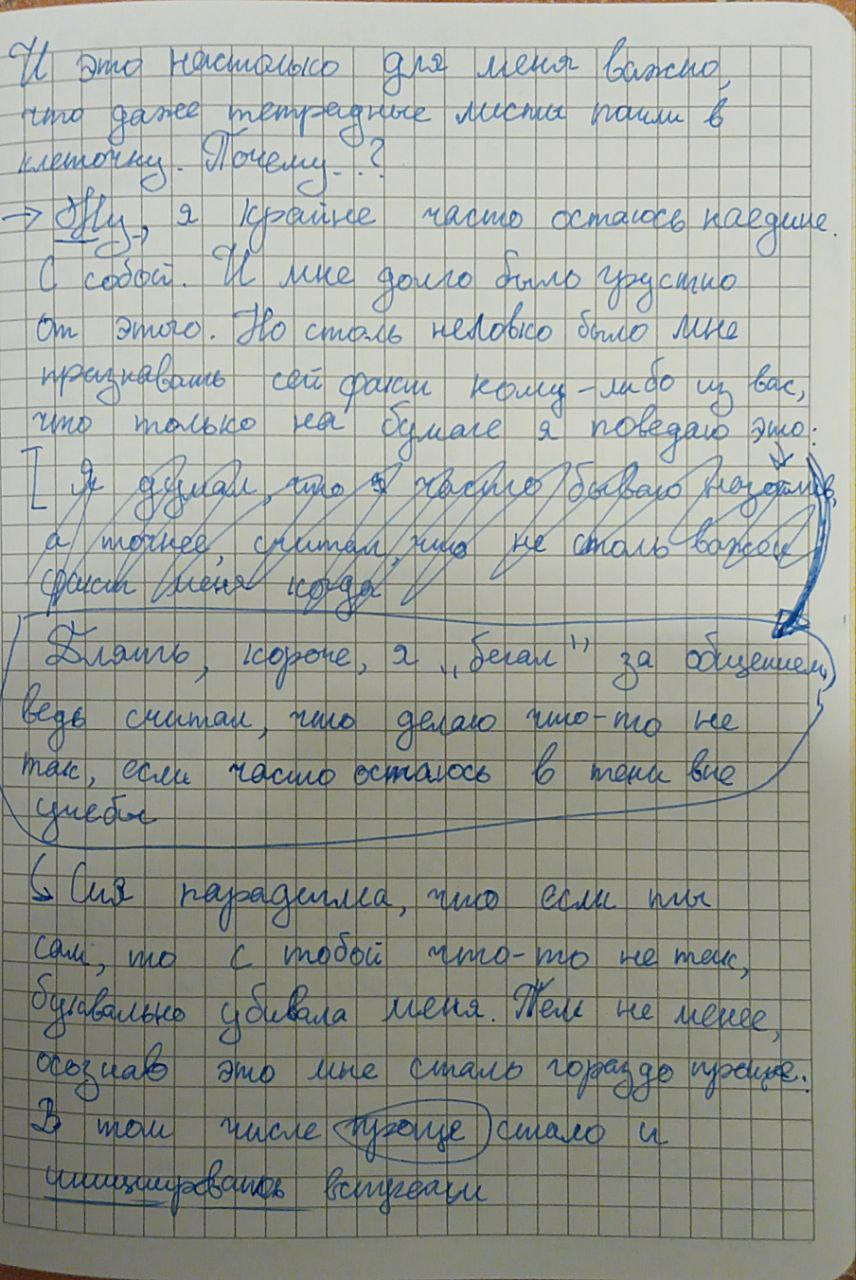 И это настолько для меня важно,
что даже тетрадные листы пошли в
клеточку. Почему...?
→ Ну, я крайне часто остаюсь наедине
с собой. И мне долго было грустно
от этого. Но столь неловко было мне
признавать сей факт кому-либо из вас,
что только на бумаге я поведаю это:
[ Я думал, что я часто бываю назойлив,
а точнее, считал, что не столь важен
факт меня когда
Блять, короче, я „бегал" за общением,
ведь считал, что делаю что-то не
так, если часто остаюсь в тени вне
учебы
↳ Сия парадигма, что если ты
сам, то с тобой что-то не так,
буквально убивала меня. Тем не менее,
осознав это мне стало гораздо проще.
В том числе проще стало и
инициировать встречи